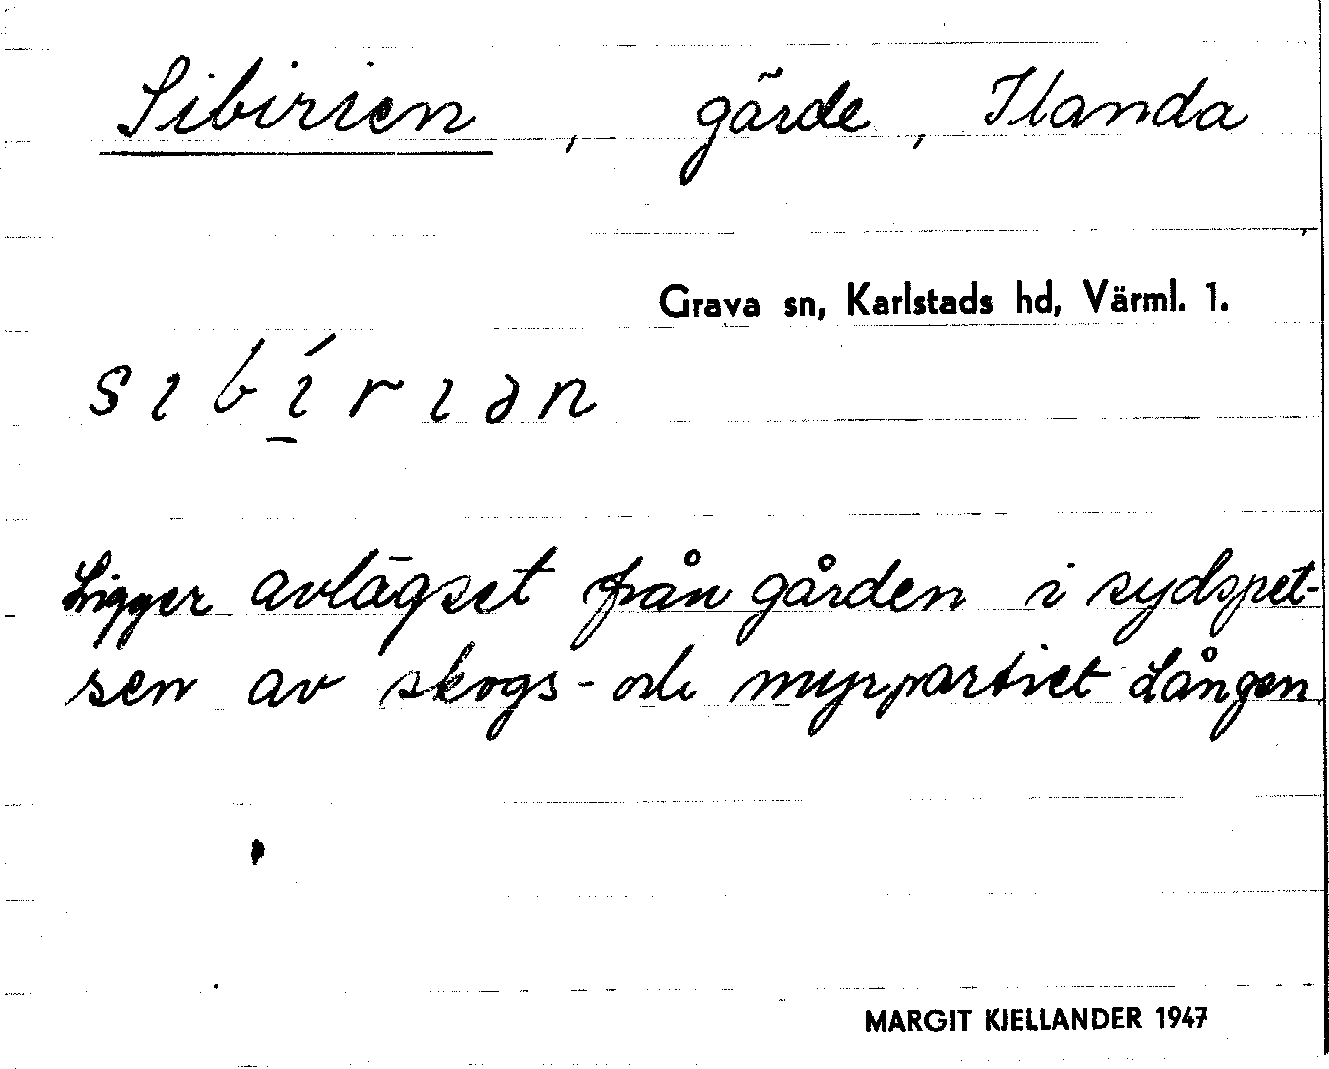 Sibirien, gärde, Ilanda
Grava sn, Karlstads hd, Värml. 1.
sıbí̱rıən
Ligger avlägset från gården i sydspet-
sen av skogs- och myrpartiet Lången
MARGIT KJELLANDER 1947